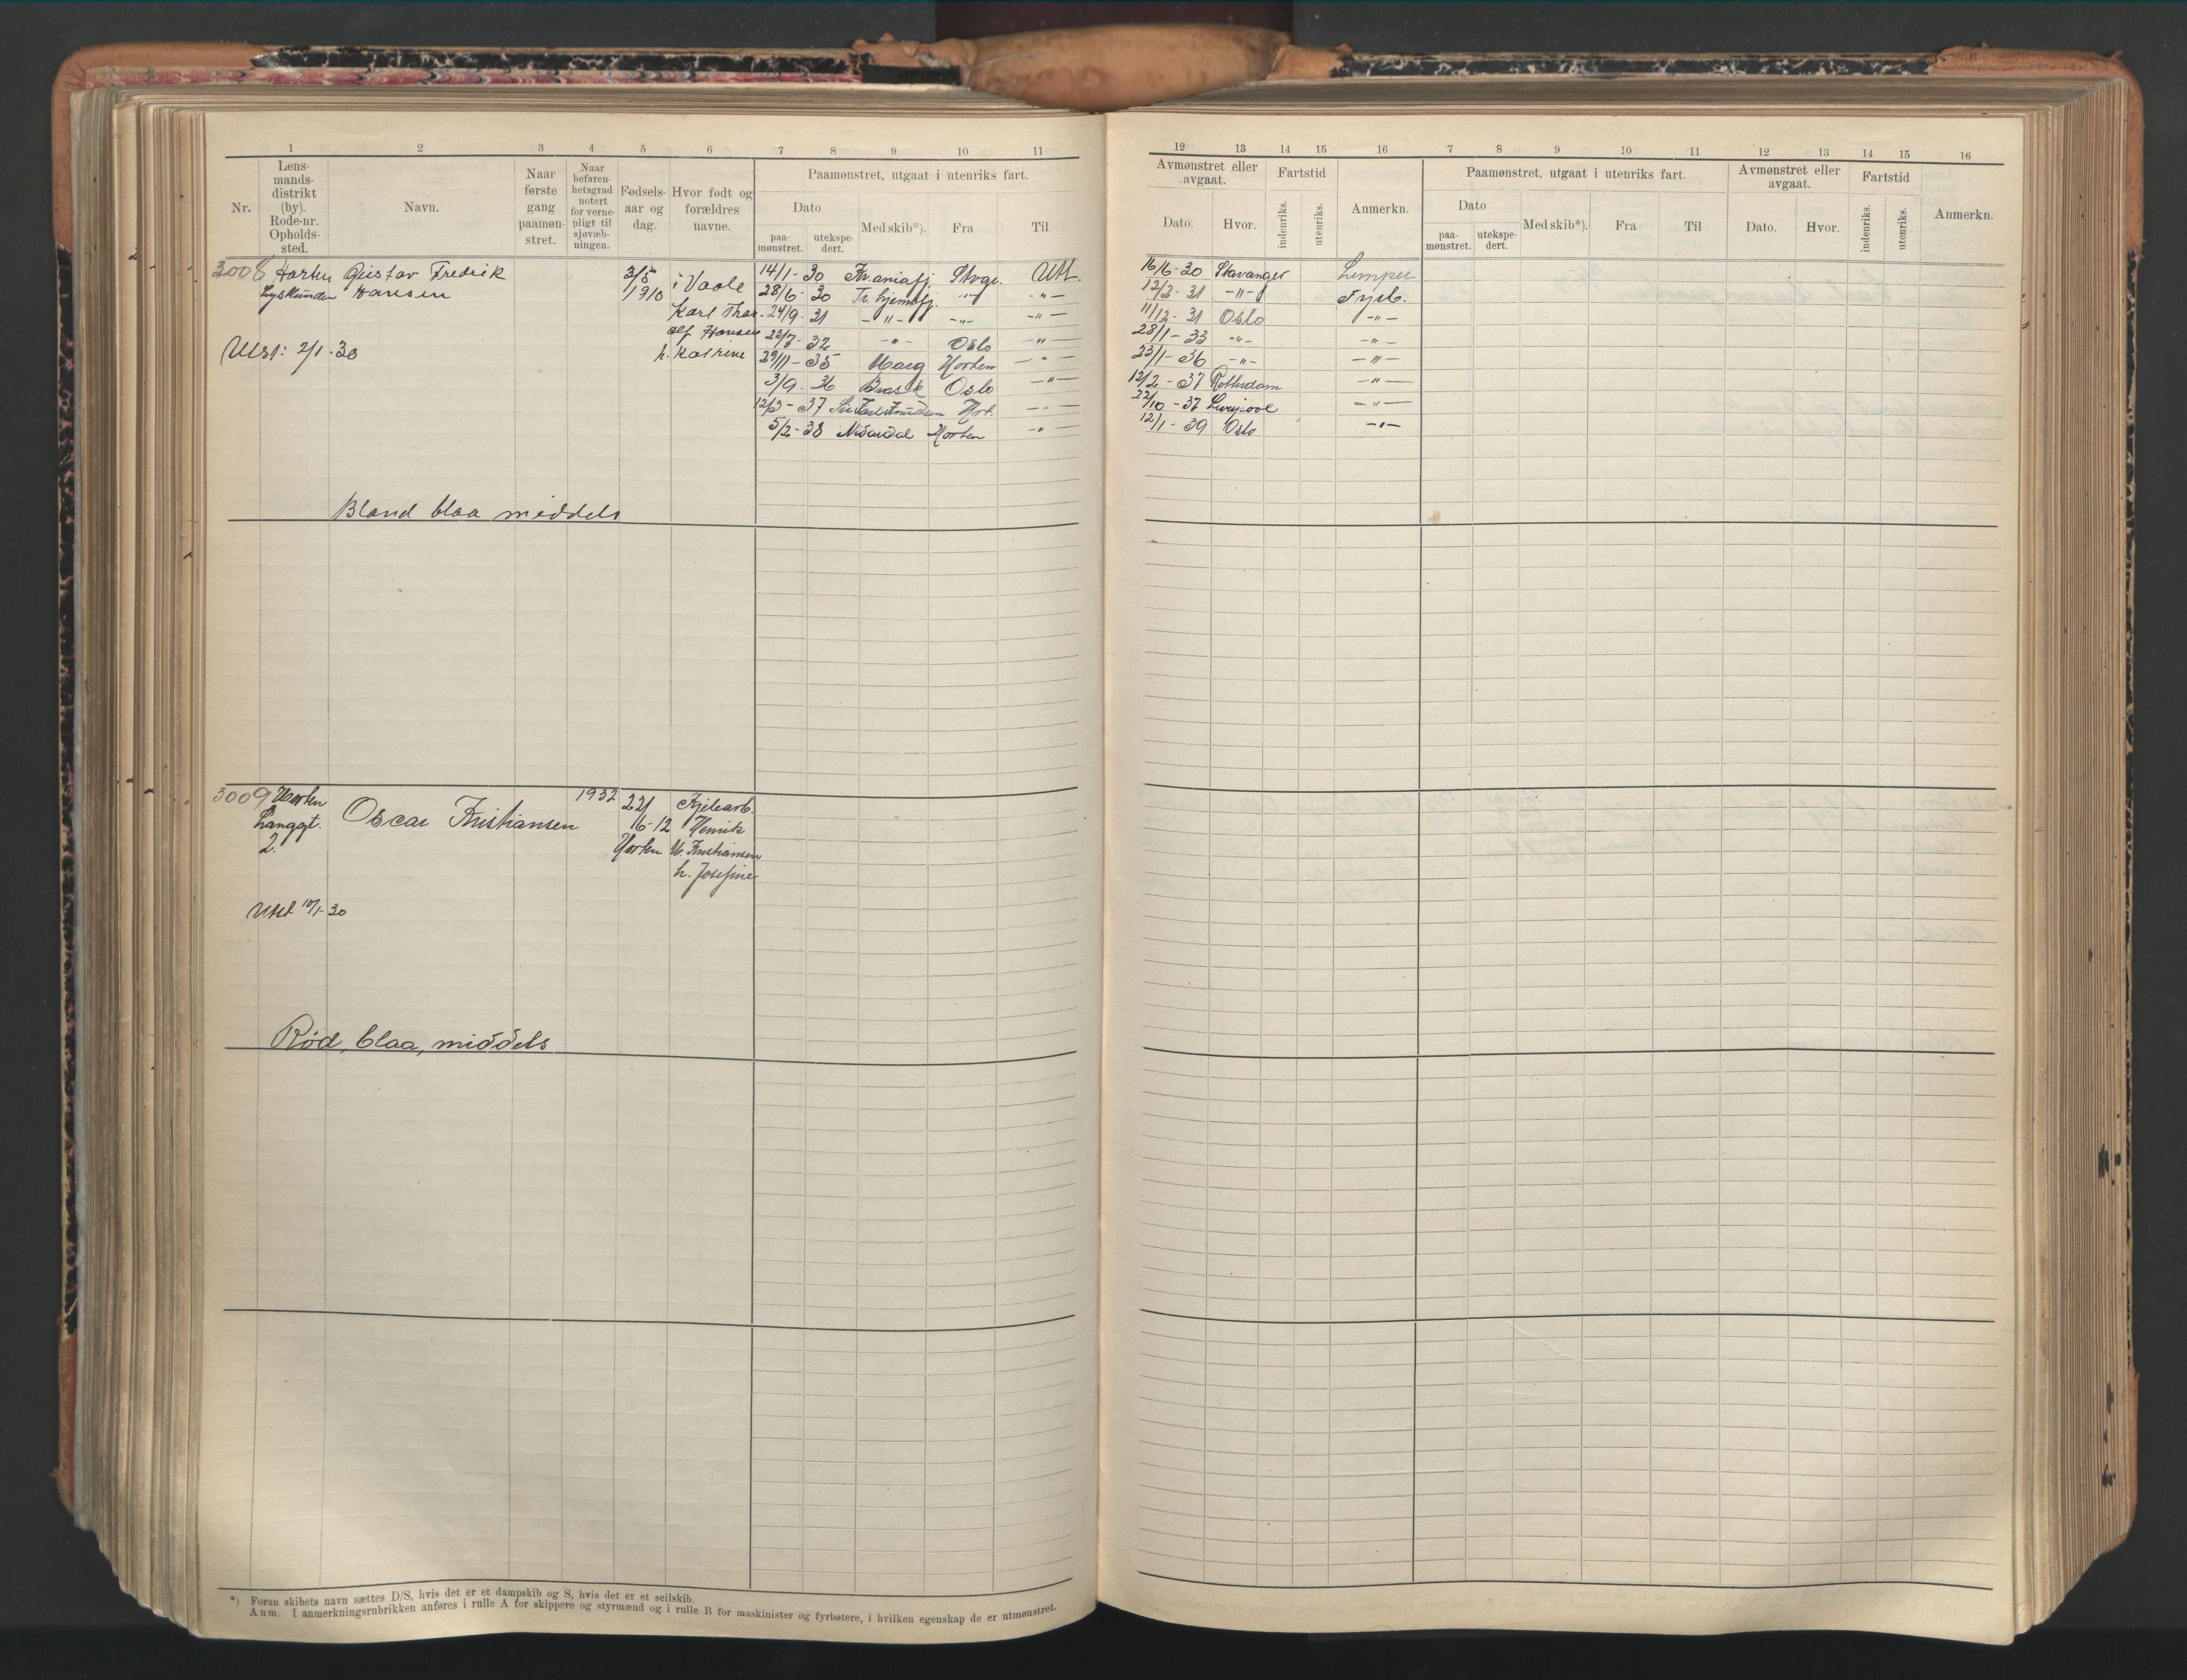 1 2 3 4 5 6 7 8 9 10 11
Nr.
Lens-
mands-
distrikt
(by).
Rode-nr.
Opholds-
sted.
Navn.
Naar
første
gang
paamøn-
stret.
Naar
befaren-
hetsgrad
notert
for verne-
pligt til
sjøvæb-
ningen.
Fødsels-
aar og
dag.
Hvor født og
forældres
navne.
Paamønstret, utgaat i utenriks fart.
Dato
paa-
mønstret.
utekspe-
dert.
Med skib*).
Fra
Til
12 13 14 15 16 7 8 9 10 11 12 13 14 15 16
Avmønstret eller
avgaat.
Dato.
Hvor.
Fartstid
indenriks.
utenriks.
Anmerkn.
Paamønstret, utgaat i utenriks fart.
Dato
paa-
mønstret.
utekspe-
dert.
Med skib*).
Fra
Til
Avmønstret eller
avgaat.
Dato.
Hvor.
Fartstid
indenriks.
utenriks.
Anmerkn.
3008 Horten Gustav Fredrik
Hansen
Utst: 2/1-30
3/5
1910
i Vaale
Karl Thor-
olf Hansen
h. Katrine
14/1-30 Kr.aniafj. Stvgr. Utl. 16/6-30 Stavanger Lemper
28/6-30 Tr.hjemsfj. -"- -"- 12/2-31 -"- Fyrb.
24/9-31 -"- -"- -"- 11/12-31 Oslo -"-
22/7-32 -"- Oslo -"- 28/1-33 -"- -"-
29/11-35 Horten -"- 23/1-36 -"- -"-
3/9-36 Brask Oslo -"- 12/2-37 Rotterdam -"-
12/3-37 -"- 22/10-37 Liverpool -"-
5/2-38 Mosdal Horten -"- 12/1-39 Oslo -"-
Blond blaa middels
3009 Horten
Langgt.
2.
Oscar Kristiansen
1932
22/
6-12
Horten
Kjelearb.
Henrik
M. Kristiansen
h. Josefine
Utst 10/1-30
Rød, blaa, middels
*) Foran skibets navn sættes D/S, hvis det er et dampskib og S, hvis det er et seilskib.
Anm. I anmerkningsrubrikken anføres i rulle A for skippere og styrmænd og i rulle B for maskinister og fyrbøtere, i hvilken egenskap de er utmønstret.